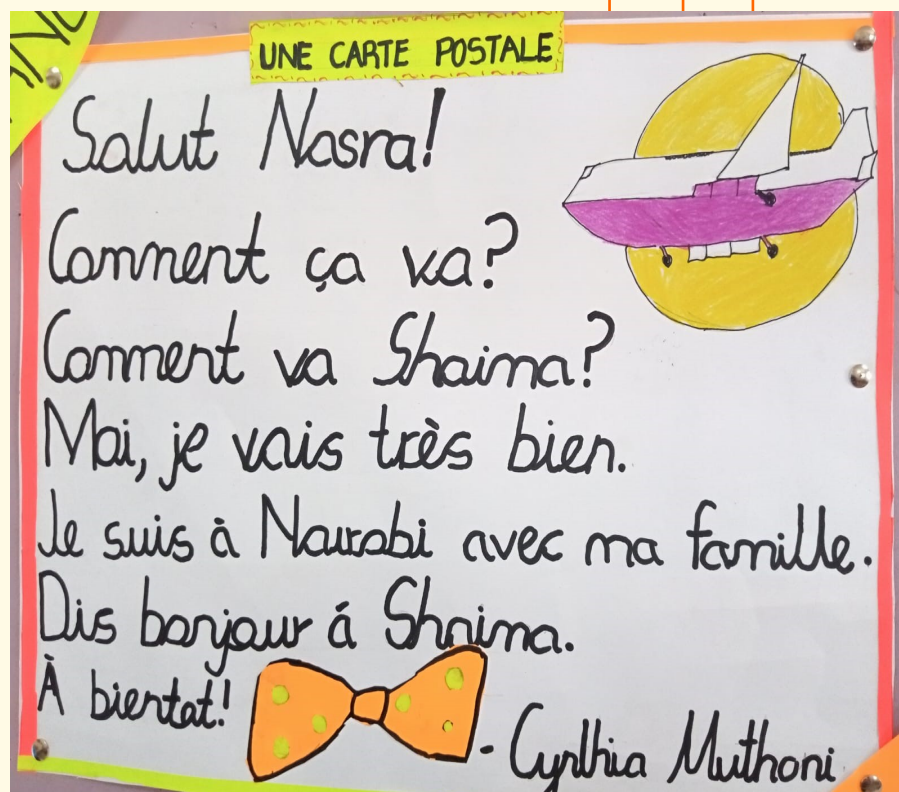 UNE CARTE POSTALE
Salut Nasra!
Comment ça va?
Comment va Shaima?
Moi, je vais très bien.
Je suis à Nairobi avec ma famille.
Dis bonjour á Shaima.
À bientat!
- Cynthia Muthoni